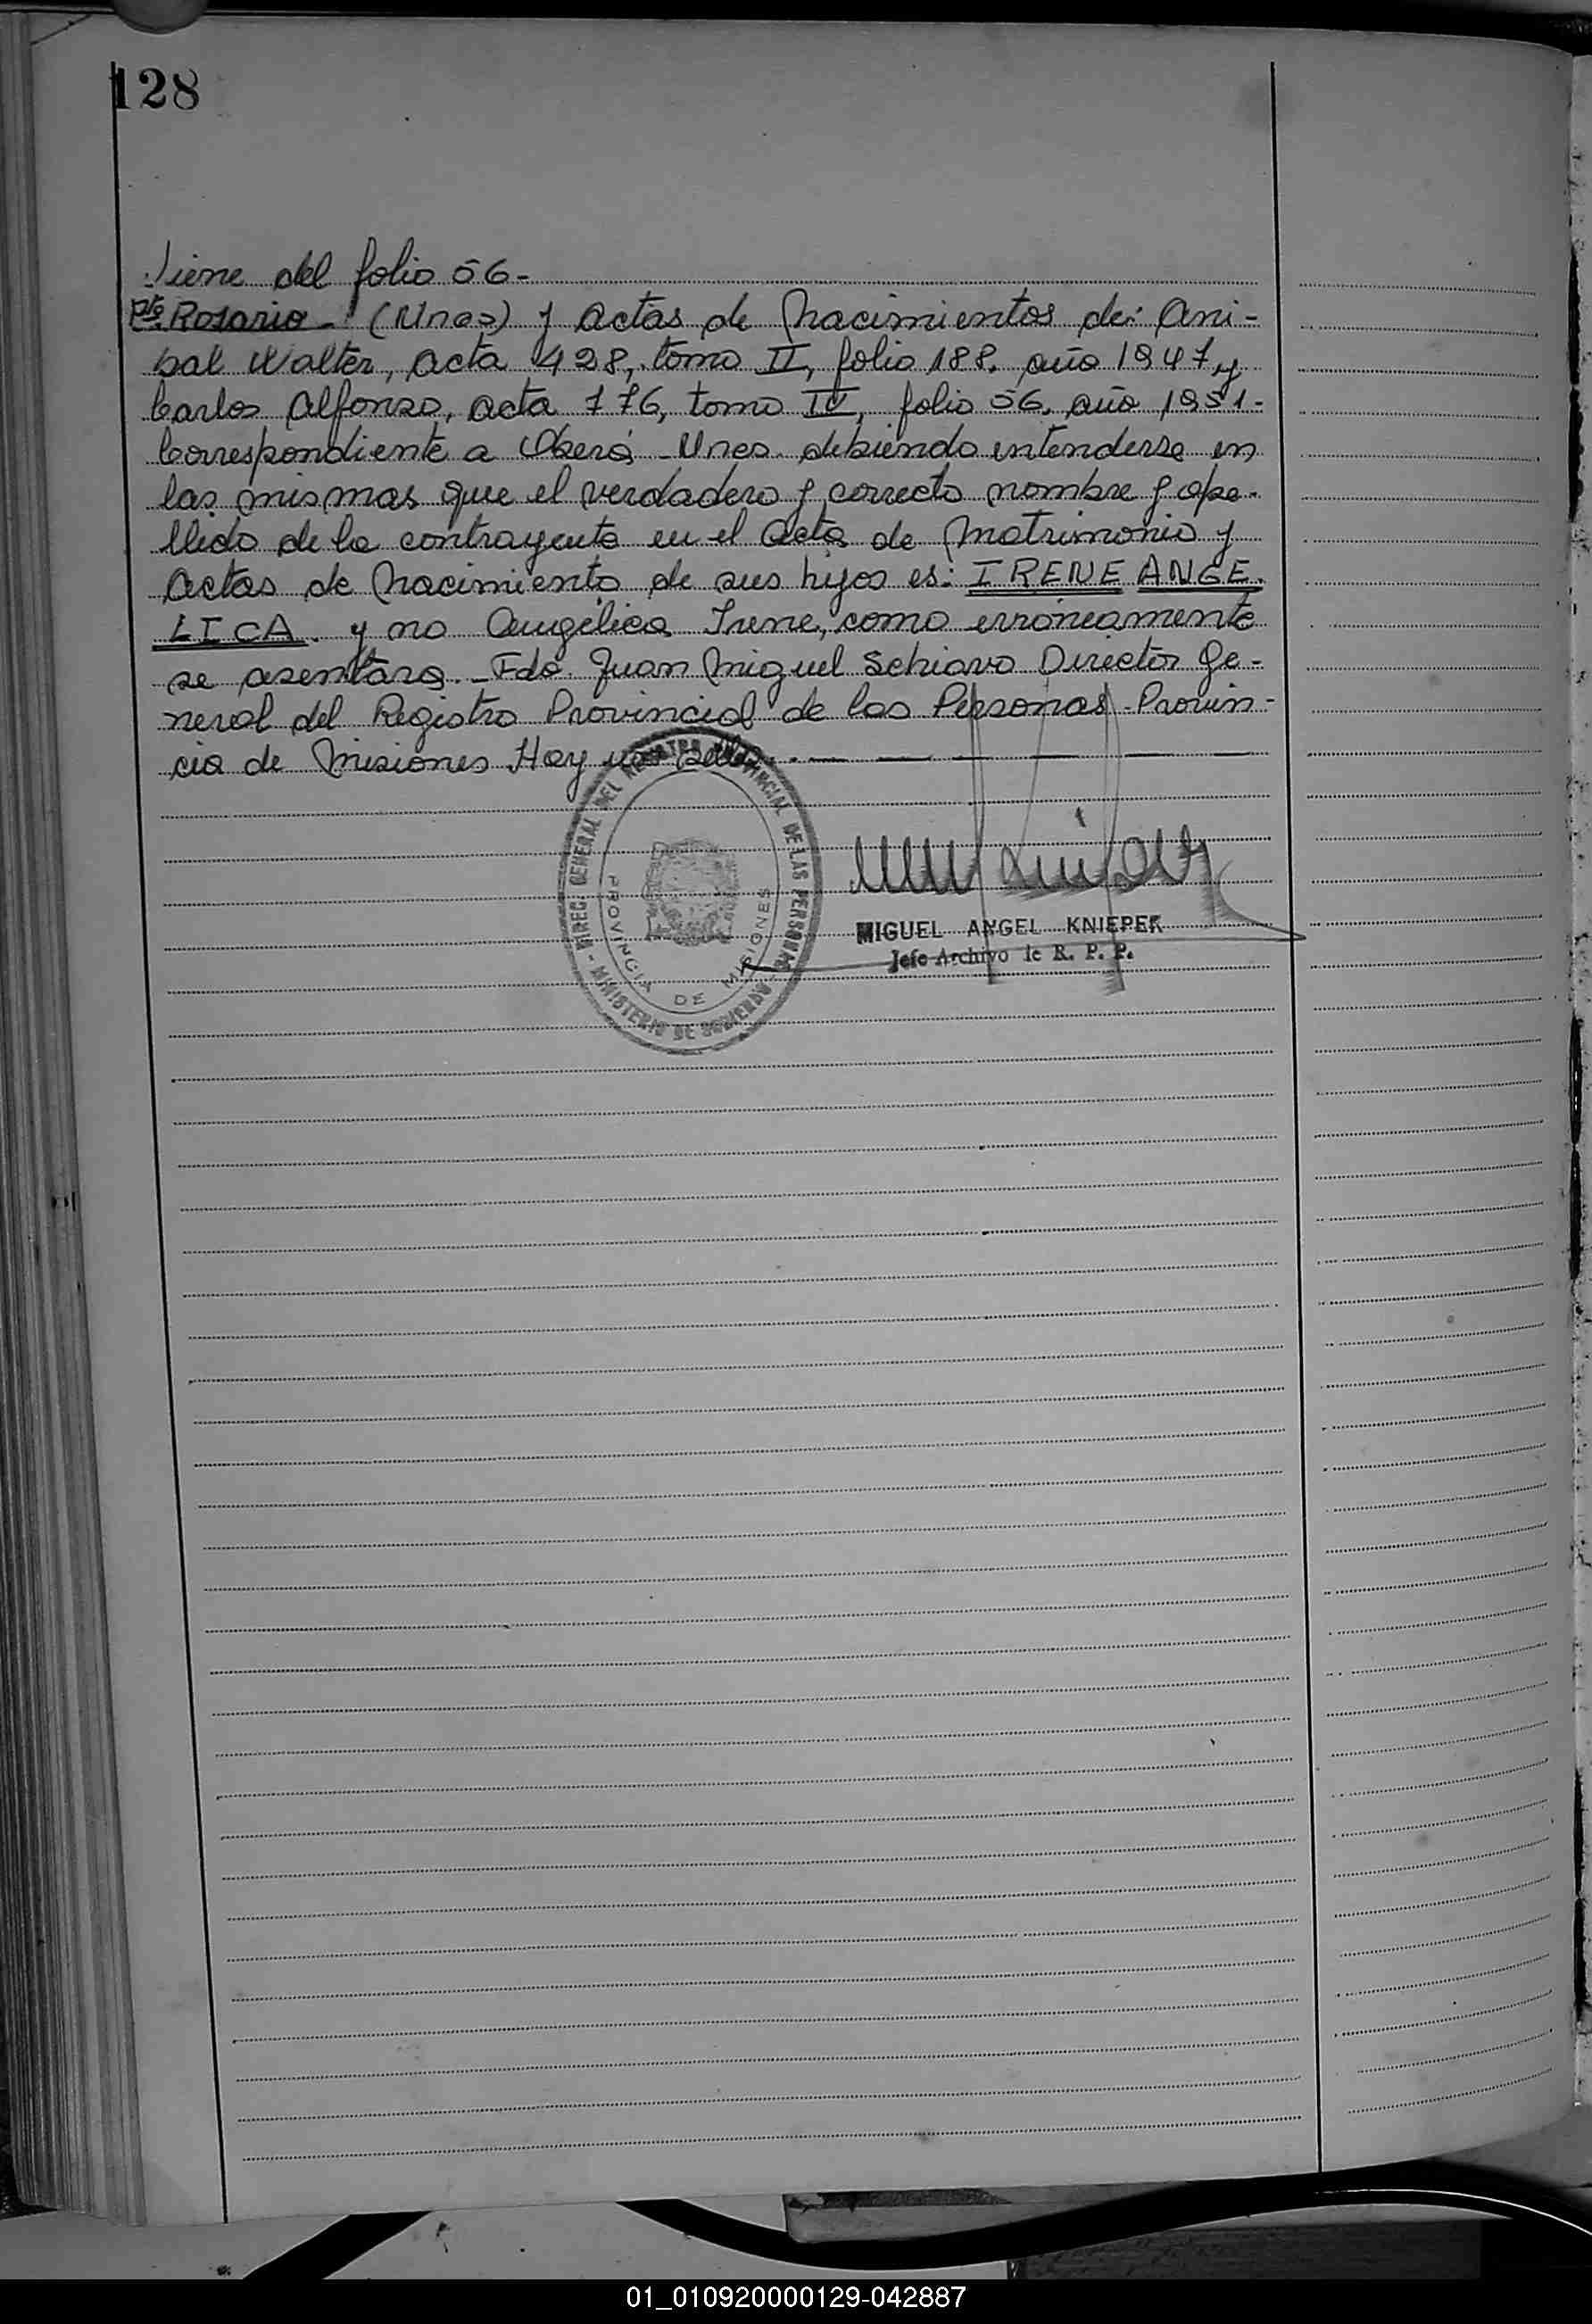 128
Viene del folio 56-
Pto. Rosario - (Mnes) y Actas de Nacimientos de: Ani-
bal Walter, Acta 428, tomo II, folio 188, año 1947 y
Carlos Alfonso, Acta 776, tomo IV, folio 56, año 1951-
Correspondiente a Oberá - Mnes. debiendo entenderse en
las mismas que el verdadero y correcto nombre y ape-
llido de la contrayente en el Acta de Matrimonio y
Actas de Nacimiento de sus hijos es: IRENE ANGE-
LICA. y no Angélica Irene, como erróneamente
se asentara.- Fdo. Juan Miguel Schiavo Director Ge-
neral del Registro Provincial de las Personas - Provin-
cia de Misiones Hay un sello.
DIREC. GENERAL DEL REGISTRO PROVINCIAL DE LAS PERSONAS - MINISTERIO DE GOBIERNO -
PROVINCIA DE MISIONES
MIGUEL ANGEL KNIEPER
Jefe Archivo de R. P. P.
01_010920000129-042887